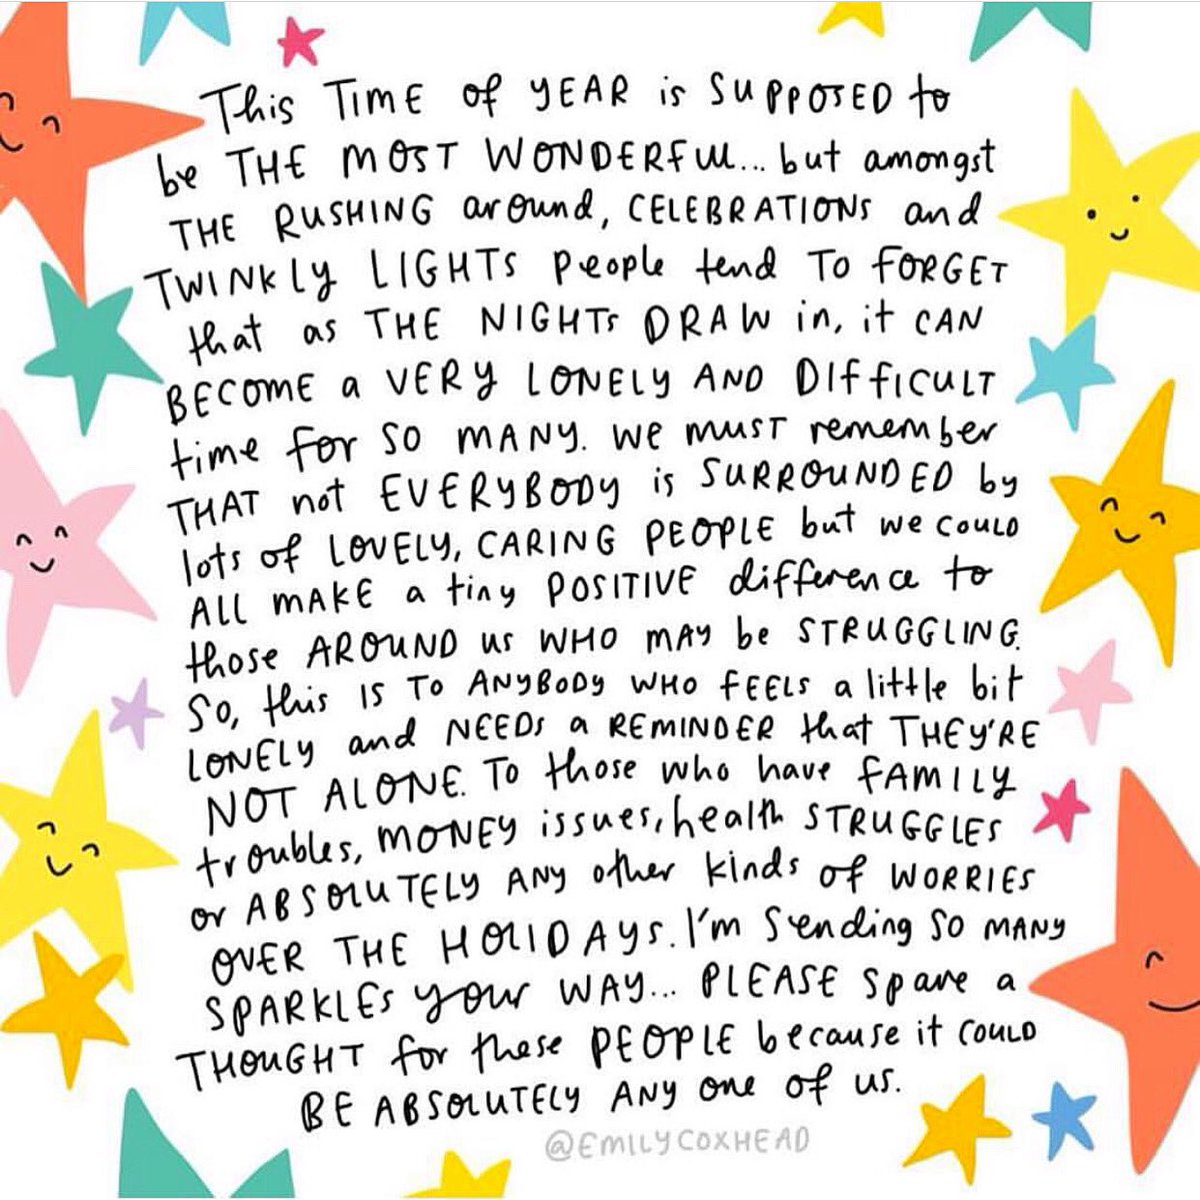 This TIME of YEAR is SUPPOSED to
be THE MOST WONDERFUL... but amongst
THE RUSHING around, CELEBRATIONS and
TWINKLY LIGHTS people tend TO FORGET
that as THE NIGHTS DRAW in, it CAN
BECOME a VERY LONELY AND DIFFICULT
time for SO MANY. We MUST remember
THAT not EVERYBODY is SURROUNDED by
lots of LOVELY, CARING PEOPLE but we COULD
ALL MAKE a tiny POSITIVE difference to
those AROUND us WHO MAY be STRUGGLING.
So, this IS TO ANYBODY WHO FEELS a little bit
LONELY and NEEDS a REMINDER that THEY'RE
NOT ALONE. TO those who have FAMILY
troubles, MONEY issues, health STRUGGLES
or ABSOLUTELY ANY other kinds of WORRIES
OVER THE HOLIDAYS. I'm Sending SO MANY
SPARKLES your WAY... PLEASE spare a
THOUGHT for these PEOPLE because it COULD
BE ABSOLUTELY ANY one of us.
@EMILYCOXHEAD